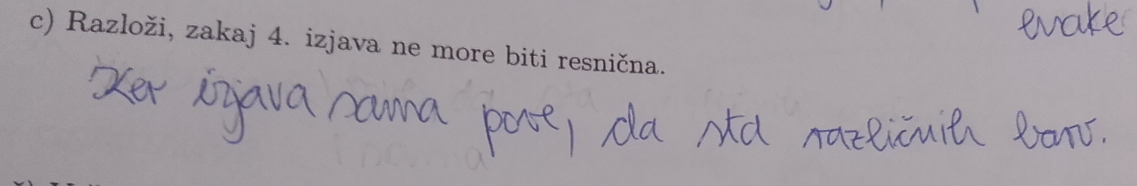 evake
c) Razloži, zakaj 4. izjava ne more biti resnična.
Ker izjava sama pove, da sta različnih barv.